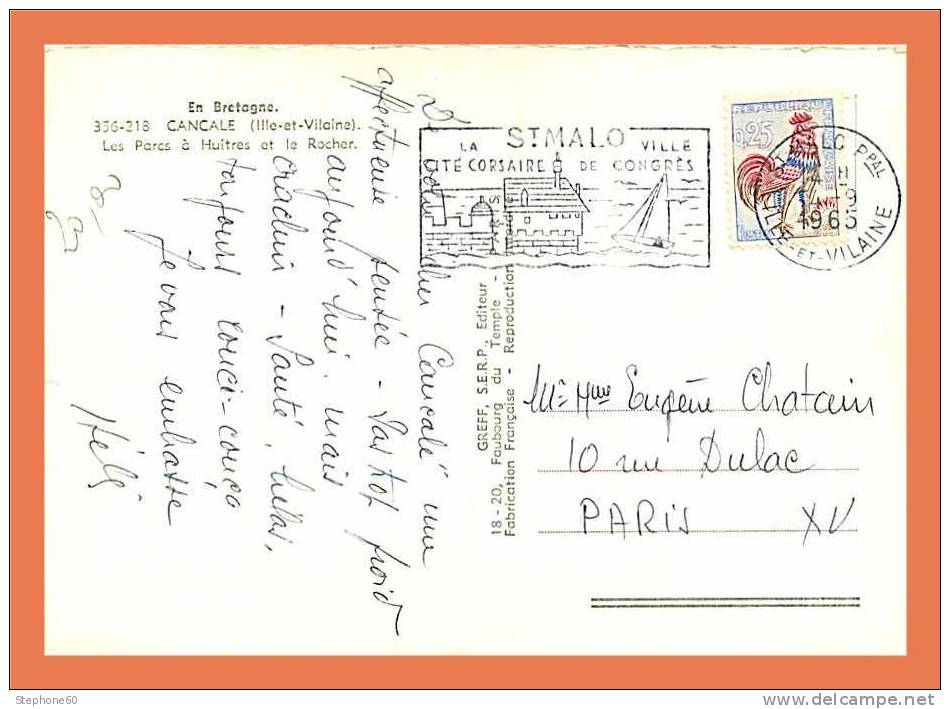 En Bretagne.
356-218 CANCALE (Ille-et-Vilaine).
Les Parcs à Huîtres et le Rocher.
De cher Cancale une
affectueuse pensée - Pas trop froid
aujourd'hui, mais
crachin - Santé, hélas,
toujours couci-couça
Je vous embrasse
GREFF, S.E.R.P., Editeur
18-20, Faubourg du Temple - PARIS
Fabrication Française - Reproduction
ST MALO
LA VILLE
CITÉ CORSAIRE DE CONGRÈS
REPUBLIQUE
0,25
ST MALO PPAL
14 H
14-9
1963
ILLE-ET-VILAINE
Mr Mme Eugène Chatain
10 rue Dulac
PARIS XV
Stephone60
www.delcampe.net